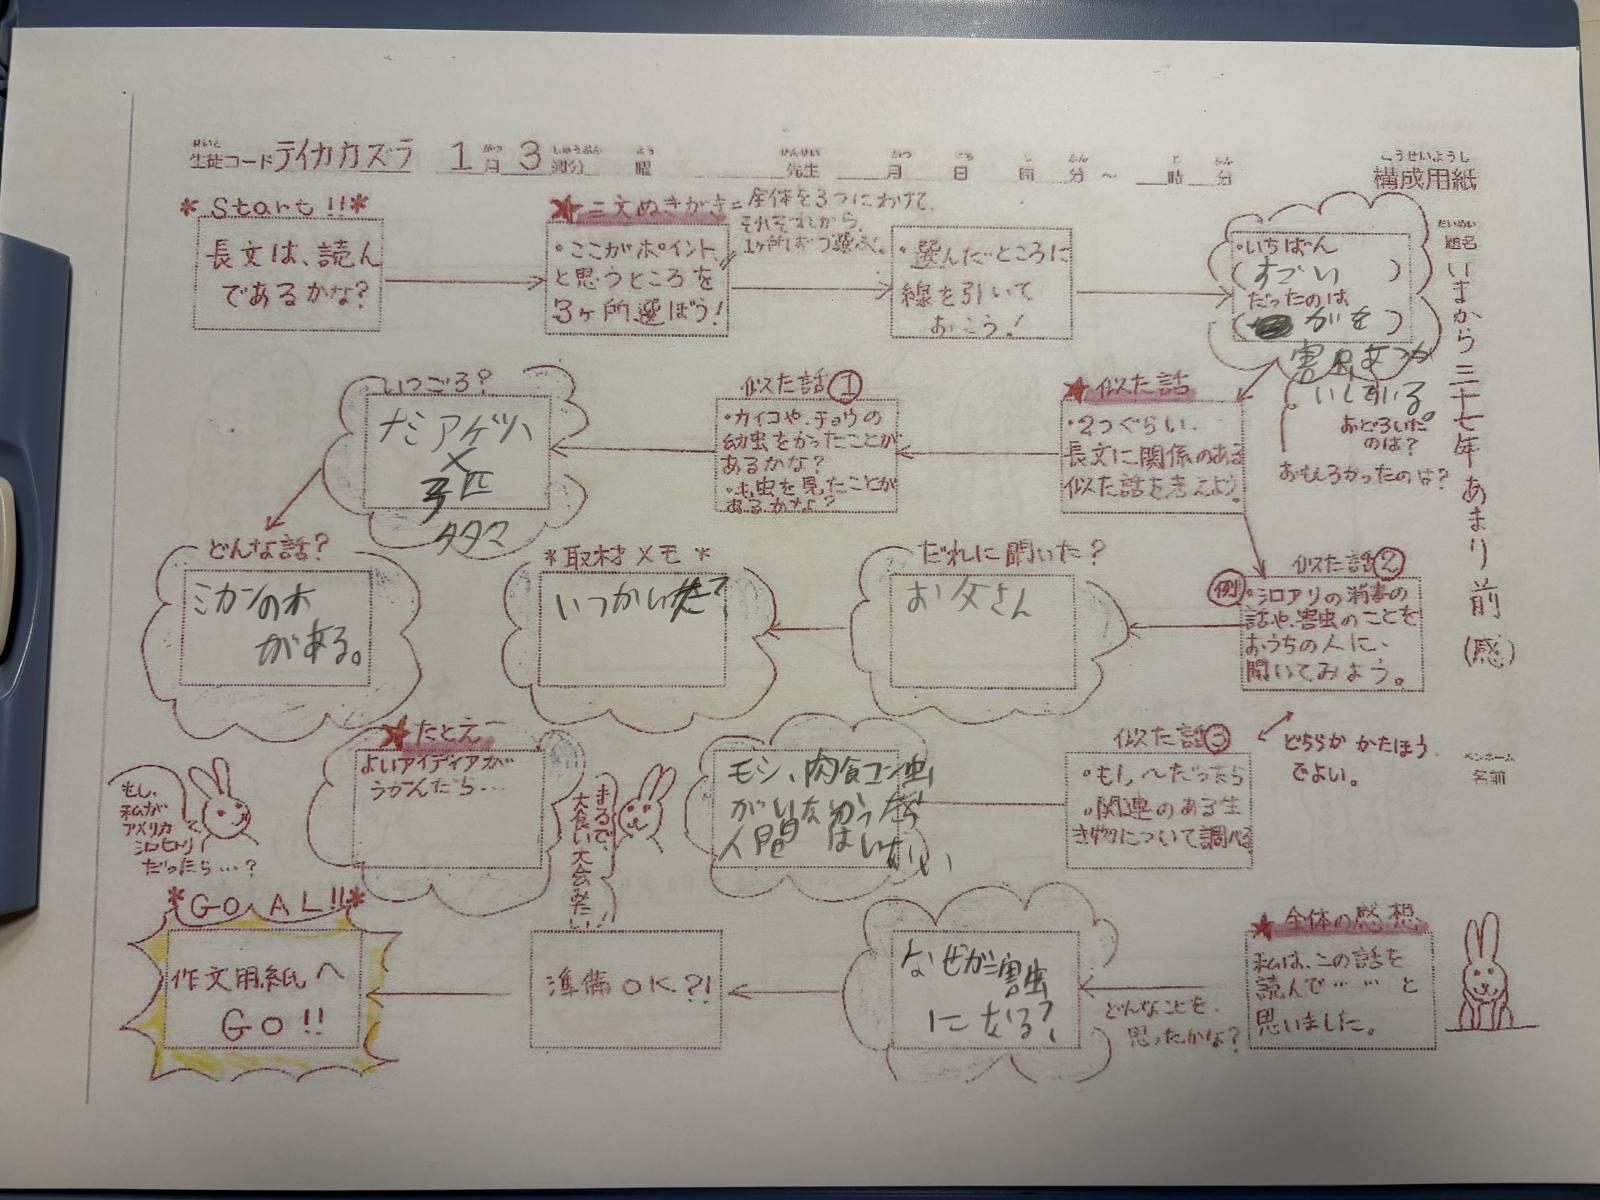 構成用紙
こうせいようし
せいと
生徒コードテイカカズラ 1月3週分 曜 先生 月 日 時 分 〜 時 分
だいめい
題名
いまから三十七年あまり前(感)
ペンネーム
名前
*Start!!*
長文は、読ん
であるかな?
★三文ぬきがき=全体を3つにわけて、
それぞれから、
1ヶ所ずつ選ぶ。
・ここがポイント、
と思うところを
3ヶ所選ぼう!
・選んだところに
線を引いて
おこう!
・いちばん
(すごい)
だったのは
(がを
害虫あつか
いしている。)
おどろいた
のは?
おもしろかったのは?
★似た話
・2つぐらい、
長文に関係のある
似た話を考えよう。
似た話①
・カイコや、チョウの
幼虫をかったことが
あるかな?
・毛虫を見たことが
あるかな?
いつごろ?
ナミアゲハ
匹
タタマ
どんな話?
ミカンの木
がある。
似た話②
例・シロアリの消毒の
話や、害虫のことを
おうちの人に、
聞いてみよう。
だれに聞いた?
お父さん
*取材メモ*
いつかい
どちらか かたほう
でよい。
似た話③
・もし〜だったら
・関連のある生
き物について調べる
モシ、肉食コン虫
がいな
人間はいない
まるで、
大食い大会みたい!
★たとえ
よいアイディアが
うかんだら…
もし、
私が
アメリカ
シロヒトリ
だったら…?
★全体の感想
私は、この話を
読んで……と
思いました。
どんなことを、
思ったかな?
なぜガ=害虫
になる?
準備OK?!
*GOAL!!*
作文用紙へ
GO!!